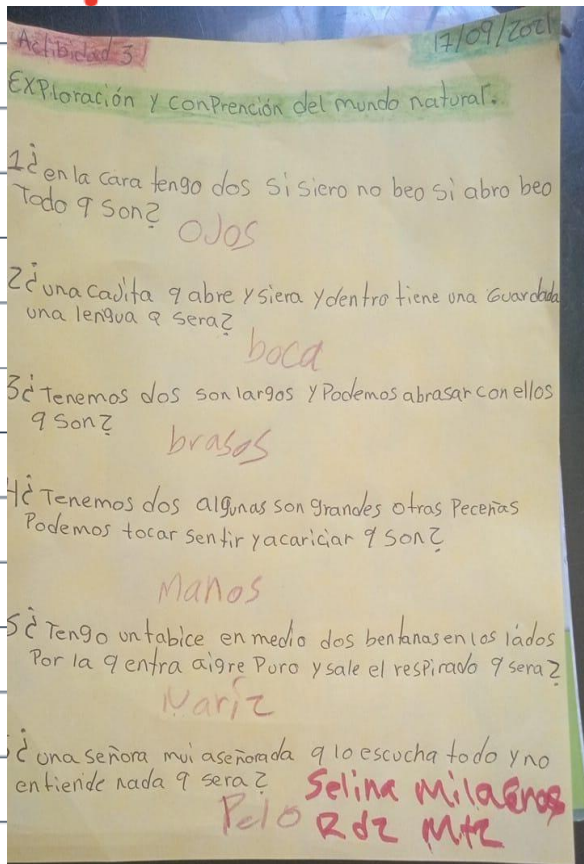 Actibidad 3
17/09/2021
Exploración y conprención del mundo natural.
1¿en la cara tengo dos si siero no beo si abro beo
Todo q son?
OJOS
2¿una cajita q abre y siera y dentro tiene una Guardada
una lengua q sera?
boca
3¿Tenemos dos son largos y Podemos abrasar con ellos
q son?
brasos
4¿Tenemos dos algunas son grandes otras Peceñas
Podemos tocar sentir y acariciar q son?
Manos
5¿Tengo un tabice en medio dos bentanas en los lados
Por la q entra aigre Puro y sale el respirado q sera?
Nariz
¿una señora mui aseñorada q lo escucha todo y no
entiende nada q sera?
Pelo
Selina Milagros
Rdz Mtz